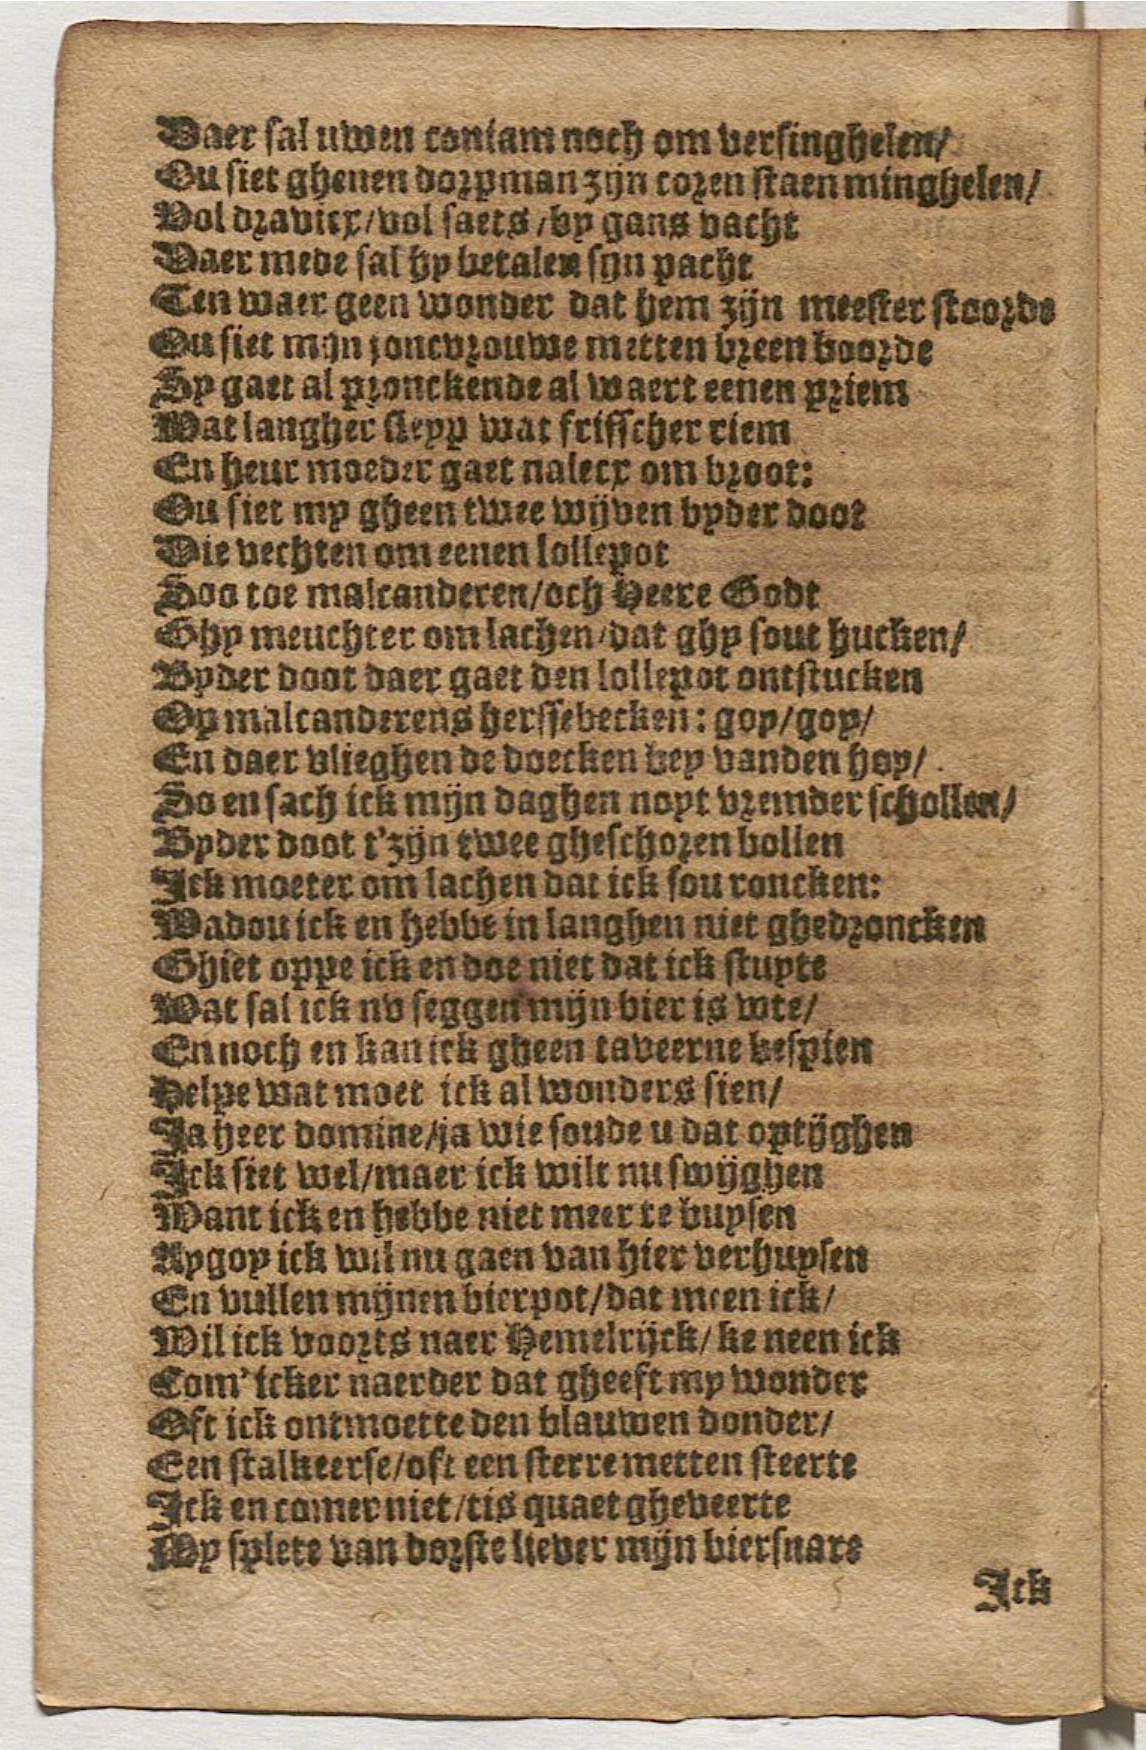 Daer sal uwen coniam noch om versinghelen/
Ou siet ghenen dorpman zijn coren staen minghelen/
Vol dravicx/vol saets/by gans vacht
Daer mede sal hy betalen sijn pacht
Ten waer geen wonder dat hem zijn meester stoorde
Ou siet mijn joncvrouwe metten breen boorde
Sy gaet al pronckende al waert eenen priem
Wat langher slepp wat frisscher riem
En heur moeder gaet nalecx om broot:
Ou siet my gheen twee wijven byder doot
Die vechten om eenen lollepot
Soo toe malcanderen/och Heere Godt
Ghy meuchter om lachen/dat ghy sout hucken/
Byder doot daer gaet den lollepot ontstucken
Op malcanderens herssebecken: gop/gop/
En daer vlieghen de doecken bey vanden hop/
So en sach ick mijn daghen noyt vremder schollen/
Byder doot t'zijn twee gheschoren bollen
Ick moeter om lachen dat ick sou roncken:
Wadou ick en hebbe in langhen niet ghedroncken
Ghiet oppe ick en doe niet dat ick stupte
Wat sal ick nv seggen mijn bier is wte/
En noch en kan ick gheen taveerne bespien
Helpe wat moet ick al wonders sien/
Ja heer domine/ja wie soude u dat optijghen
Ick siet wel/maer ick wilt nu swijghen
Want ick en hebbe niet meer te buysen
Aygoy ick wil nu gaen van hier verhuysen
En vullen mijnen bierpot/dat meen ick/
Wil ick voorts naer Hemelrijck/ke neen ick
Com' icker naerder dat gheeft my wonder
Oft ick ontmoette den blauwen donder/
Een stalkeerse/oft een sterre metten steerte
Ick en comer niet/tis quaet gheveerte
My splete van dorste liever mijn biersnare
Ick